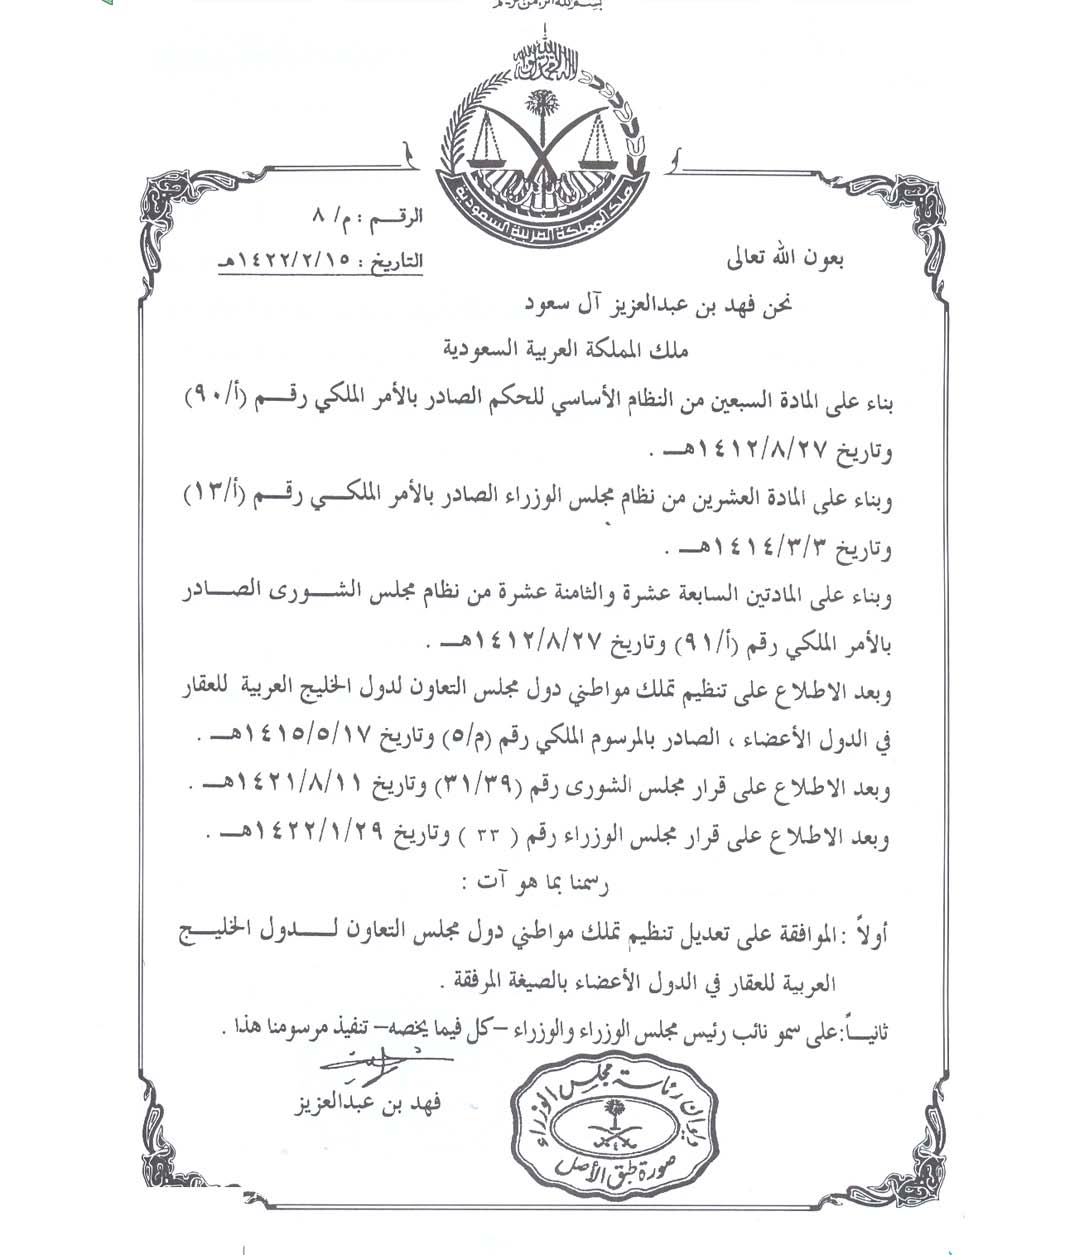 بسم الله الرحمن الرحيم
لا إله إلا الله محمد رسول الله
ملك المملكة العربية السعودية
الرقـــم : م/ ٨
التاريخ : ١٤٢٢/٢/١٥هـ
بعون الله تعالى
نحن فهد بن عبدالعزيز آل سعود
ملك المملكة العربية السعودية
بناء على المادة السبعين من النظام الأساسي للحكم الصادر بالأمر الملكي رقـــم (أ/٩٠)
وتاريخ ١٤١٢/٨/٢٧هــ .
وبناء على المادة العشرين من نظام مجلس الوزراء الصادر بالأمر الملكـــي رقـــم (أ/١٣)
وتاريخ ١٤١٤/٣/٣هــ .
وبناء على المادتين السابعة عشرة والثامنة عشرة من نظام مجلس الشـــورى الصـــادر
بالأمر الملكي رقم (أ/٩١) وتاريخ ١٤١٢/٨/٢٧هــ .
وبعد الاطلاع على تنظيم تملك مواطني دول مجلس التعاون لدول الخليج العربية للعقار
في الدول الأعضاء ، الصادر بالمرسوم الملكي رقم (م/٥) وتاريخ ١٤١٥/٥/١٧هــ .
وبعد الاطلاع على قرار مجلس الشورى رقم (٣١/٣٩) وتاريخ ١٤٢١/٨/١١هــ .
وبعد الاطلاع على قرار مجلس الوزراء رقم ( ٣٣ ) وتاريخ ١٤٢٢/١/٢٩هــ .
رسمنا بما هو آت :
أولاً : الموافقة على تعديل تنظيم تملك مواطني دول مجلس التعاون لـــدول الخليـــج
العربية للعقار في الدول الأعضاء بالصيغة المرفقة .
ثانيــاً: على سمو نائب رئيس مجلس الوزراء والوزراء –كل فيما يخصه– تنفيذ مرسومنا هذا .
فهد بن عبدالعزيز
ديوان رئاسة مجلس الوزراء
صورة طبق الأصل